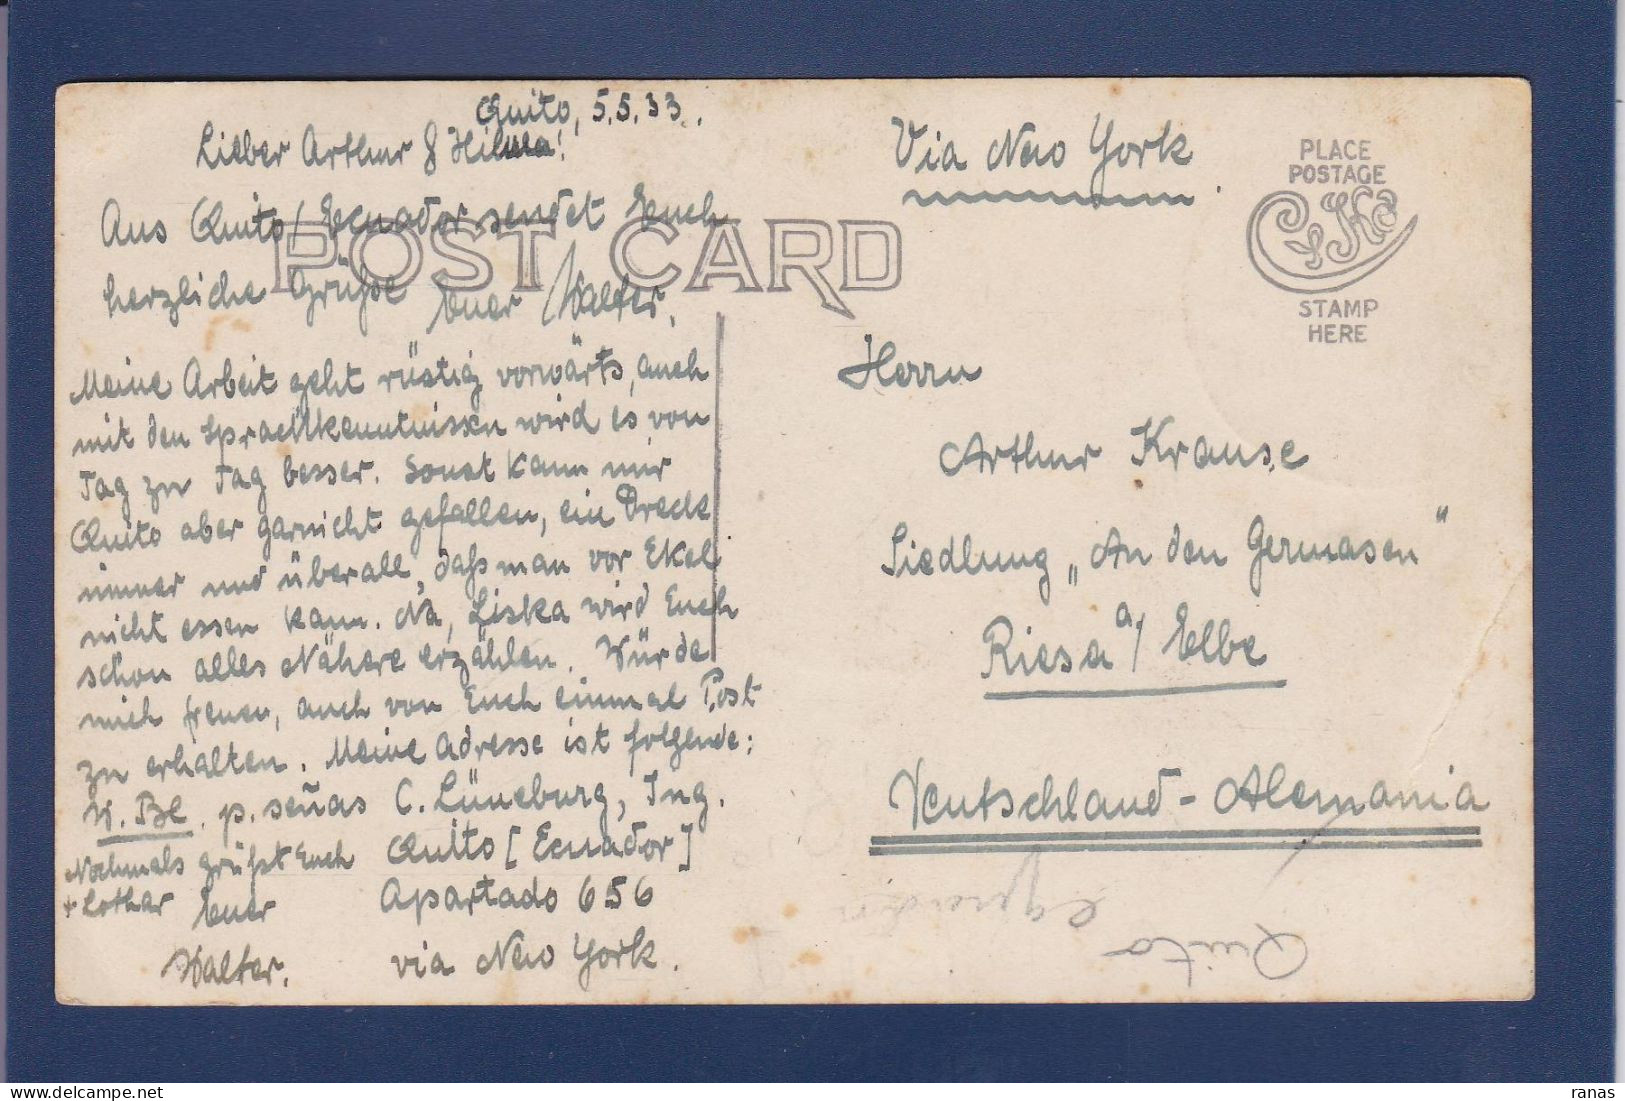 Quito, 5.5.33.
Lieber Arthur & Hilma!
Aus Quito/Ecuador sendet Euch
herzliche Grüße Euer Walter.
Meine Arbeit geht rüstig vorwärts, auch
mit den Sprachkenntnissen wird es von
Tag zu Tag besser. Sonst kann mir
Quito aber garnicht gefallen, ein Dreck
immer und überall, daß man vor Ekel
nicht essen kann. Na, Liska wird Euch
schon alles Nähere erzählen. Würde
mich freuen, auch von Euch einmal Post
zu erhalten. Meine Adresse ist folgende:
W. Bl. p. señas C. Lüneburg, Ing.
Quito [Ecuador]
Apartado 656
via New York.
Nochmals grüßt Euch
+ Lothar Euer
Walter.
POST CARD
Via New York.
PLACE
POSTAGE
STAMP
HERE
Herrn
Arthur Krause
Siedlung „An den Germasen"
Riesa a/ Elbe
Deutschland - Alemania
Quito
Equador
ranas